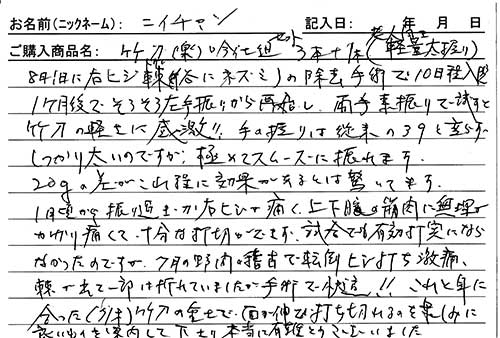 お名前(ニックネーム): ニイチャン 記入日: 年 月 日
ご購入商品名: 竹刀(楽)吟仕組セット3本+1本(軽量太握り)
8月1日に右ヒジ棘(谷にネズミ)の除去手術で10日程入院
1ヶ月後でそろそろ左手振りから再始し、両手素振りで試すと
竹刀の軽さに感激!! 手の握りは従来の39と変らず
しっかり太いのですが、極めてスムーズに振れます。
20gの差がこれ程に効果があるとは驚いてます。
1月頃から振り過ぎか右ヒジが痛く、上下腕の筋肉に無理が
かかり痛くて、十分な打切ができず、試合でも有効打突になら
なかったのですが、7月の野内の稽古で転倒ヒジ打ち激痛、
棘が出て一部は折れていましたが手術で !! これと年に
合った 竹刀の重さで、面が伸び打ち切れるのを楽しみに
良いものを案内して下さり本当に有難とうございました